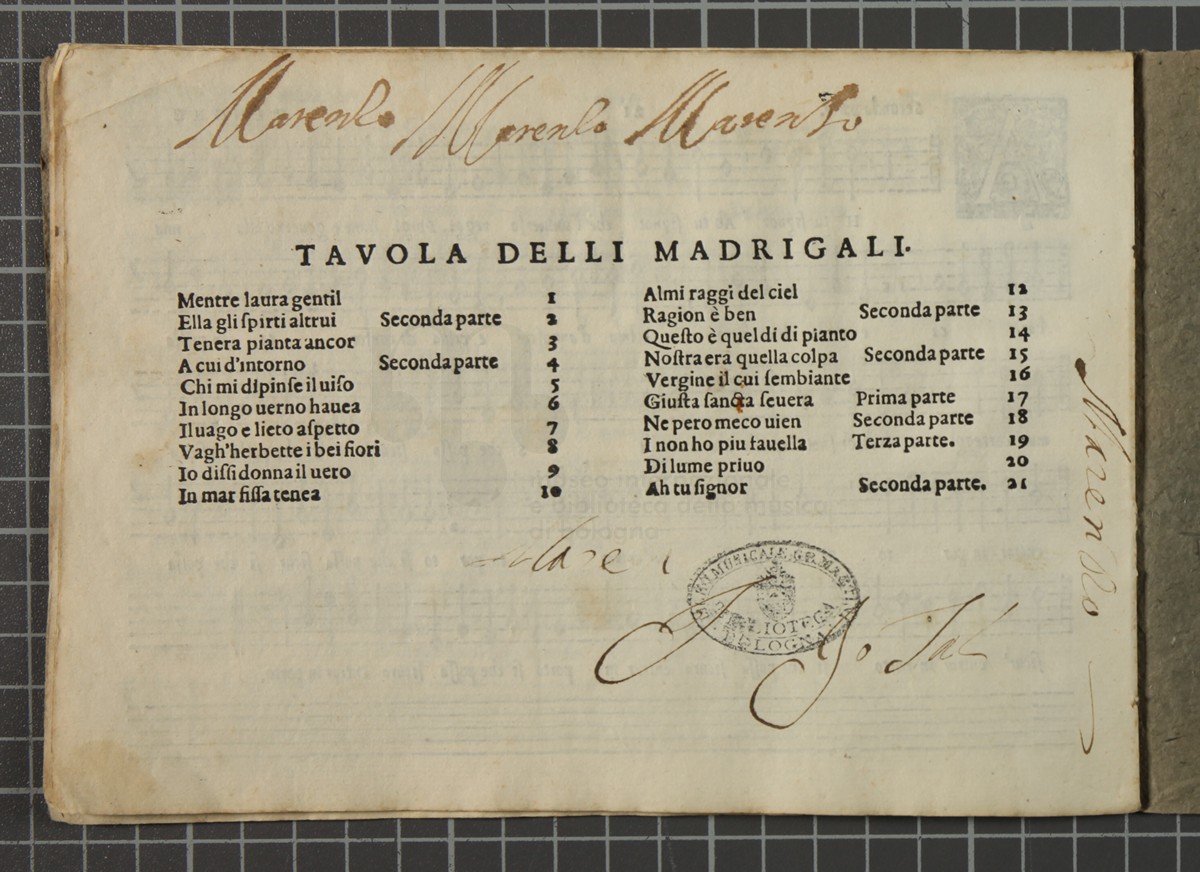 Marenzo Marenzo Marenzo
TAVOLA DELLI MADRIGALI.
Mentre laura gentil 1
Ella gli ſpirti altrui Seconda parte 2
Tenera pianta ancor 3
A cui d'intorno Seconda parte 4
Chi mi dipinſe il uiſo 5
In longo uerno hauea 6
Il uago e lieto aſpetto 7
Vagh'herbette i bei fiori 8
Io diſſi donna il uero 9
In mar fiſſa tenea 10
Almi raggi del ciel 12
Ragion è ben Seconda parte 13
Queſto è quel dì di pianto 14
Noſtra era quella colpa Seconda parte 15
Vergine il cui ſembiante 16
Giuſta ſancta ſeuera Prima parte 17
Ne pero meco uien Seconda parte 18
I non ho piu fauella Terza parte. 19
Di lume priuo 20
Ah tu ſignor Seconda parte. 21
museo internazionale
e biblioteca della musica
di bologna
BIBLIOTECA
BOLOGNA